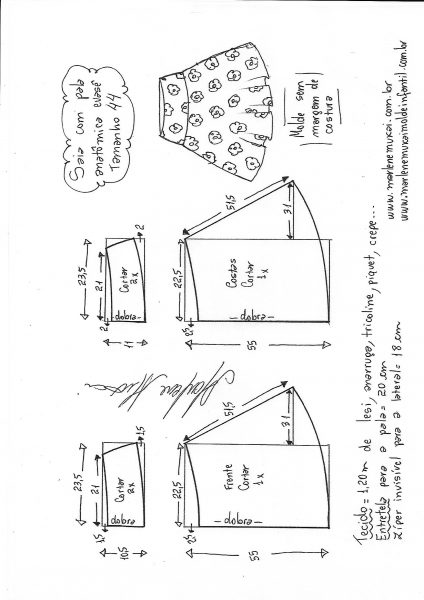 Saia com pala
anatômica evasê
Tamanho 44
Molde sem
margem de
costura
www.marlenemukai.com.br
www.marlenemukaimoldeinfantil.com.br
23,5
21
2
2
11
Cortar
2x
dobra
22,5
25
55
51,5
31
Costas
Cortar
1x
dobra
Marlene Mukai
23,5
21
1,5
1,5
10,5
Cortar
2x
dobra
22,5
25
55
51,5
31
Frente
Cortar
1x
dobra
Tecido = 1,20m de lesi, anarruga, tricoline, piquet, crepe...
Entretela para a pala = 20 cm
Zíper invisível para a lateral = 18 cm